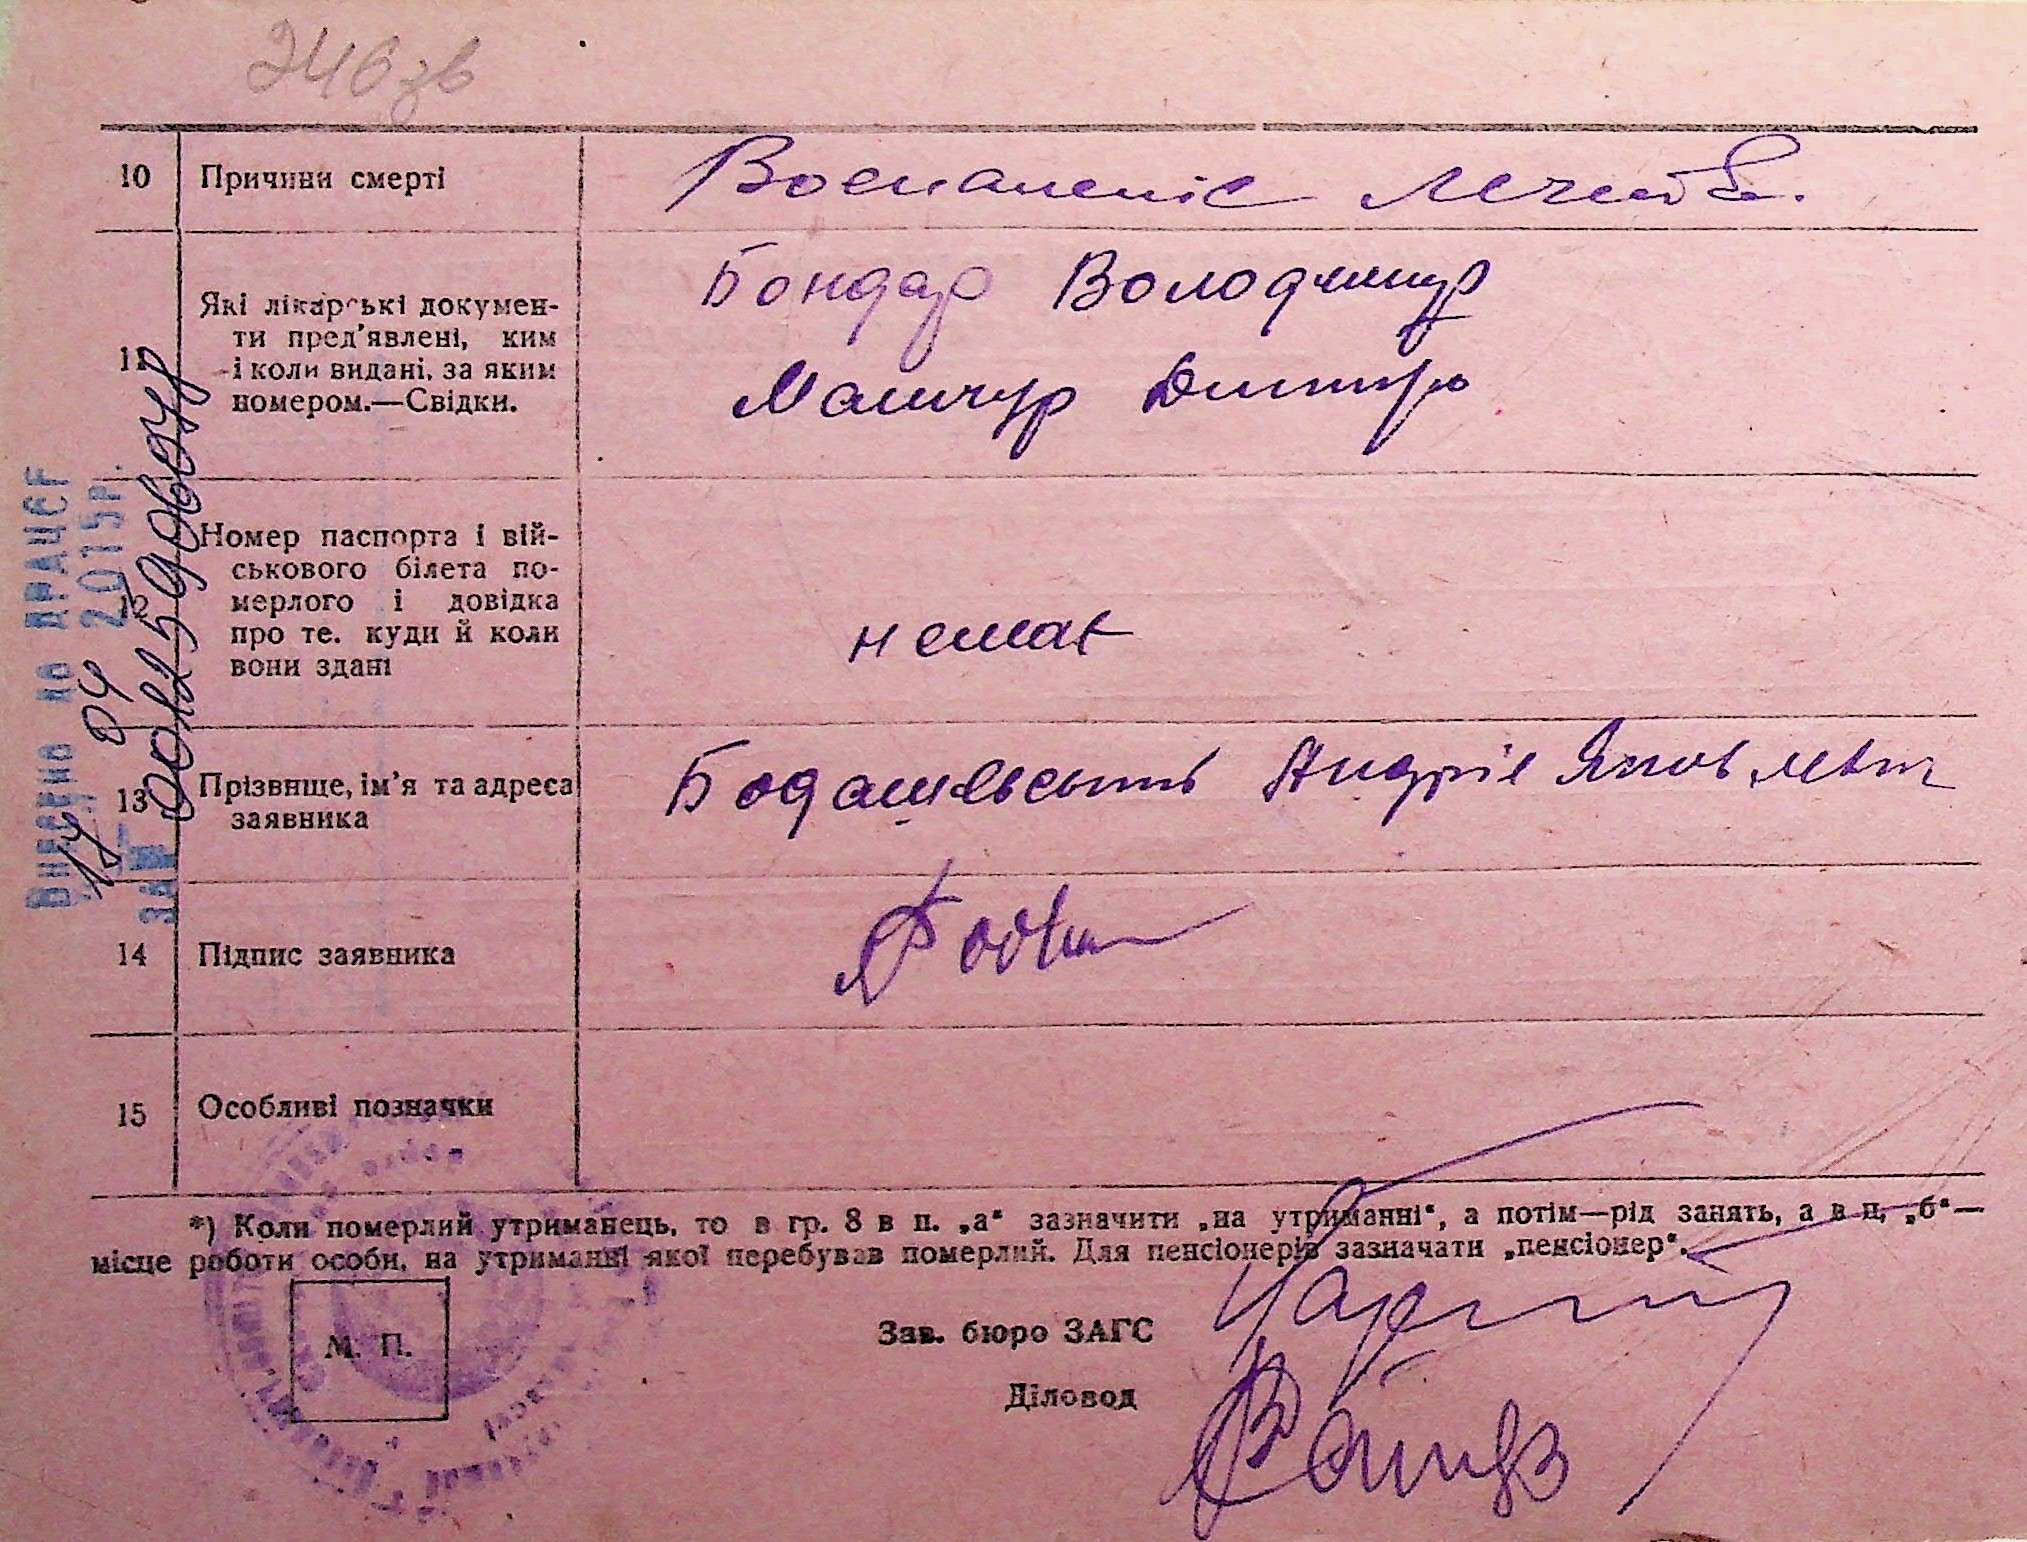 246 зв
10 Причини смерті Воспаленіє легких.
Бондар Володимир
11 Які лікарські докумен-
ти пред'явлені, ким
і коли видані, за яким
номером.—Свідки.
Мапчур Дмитро
12 Номер паспорта і вій-
ськового білета по-
мерлого і довідка
про те. куди й коли
вони здані
немає
13 Прізвище, ім'я та адреса
заявника
Андрій Яковлевич
14 Підпис заявника
15 Особливі позначки
*) Коли померлий утриманець, то в гр. 8 в п. „а“ зазначити „на утриманні“, а потім—рід занять, а в п. „б“—
місце роботи особи, на утриманні якої перебував померлий. Для пенсіонерів зазначати „пенсіонер“.
М. П.
Зав. бюро ЗАГС
Діловод
Внесено до ДРАЦСГ
17 04 2015р.
за № 00125906048